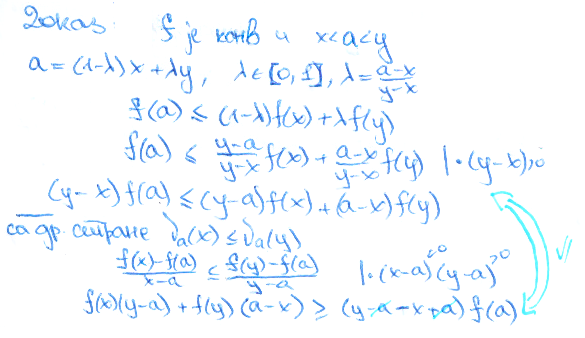 Доказ: f je конв и x<a<y
a = (1-λ)x + λy, λ∈[0,1], λ = \frac{a-x}{y-x}
f(a) ≤ (1-λ)f(x) + λf(y)
f(a) ≤ \frac{y-a}{y-x} f(x) + \frac{a-x}{y-x} f(y) |·(y-x)>0
(y-x)f(a) ≤ (y-a)f(x) + (a-x)f(y)
са др. стране ν_a(x) ≤ ν_a(y)
\frac{f(x)-f(a)}{x-a} ≤ \frac{f(y)-f(a)}{y-a} |·(x-a)^{<0}(y-a)^{>0}
f(x)(y-a) + f(y)(a-x) ≥ (y-a-x+a)f(a)